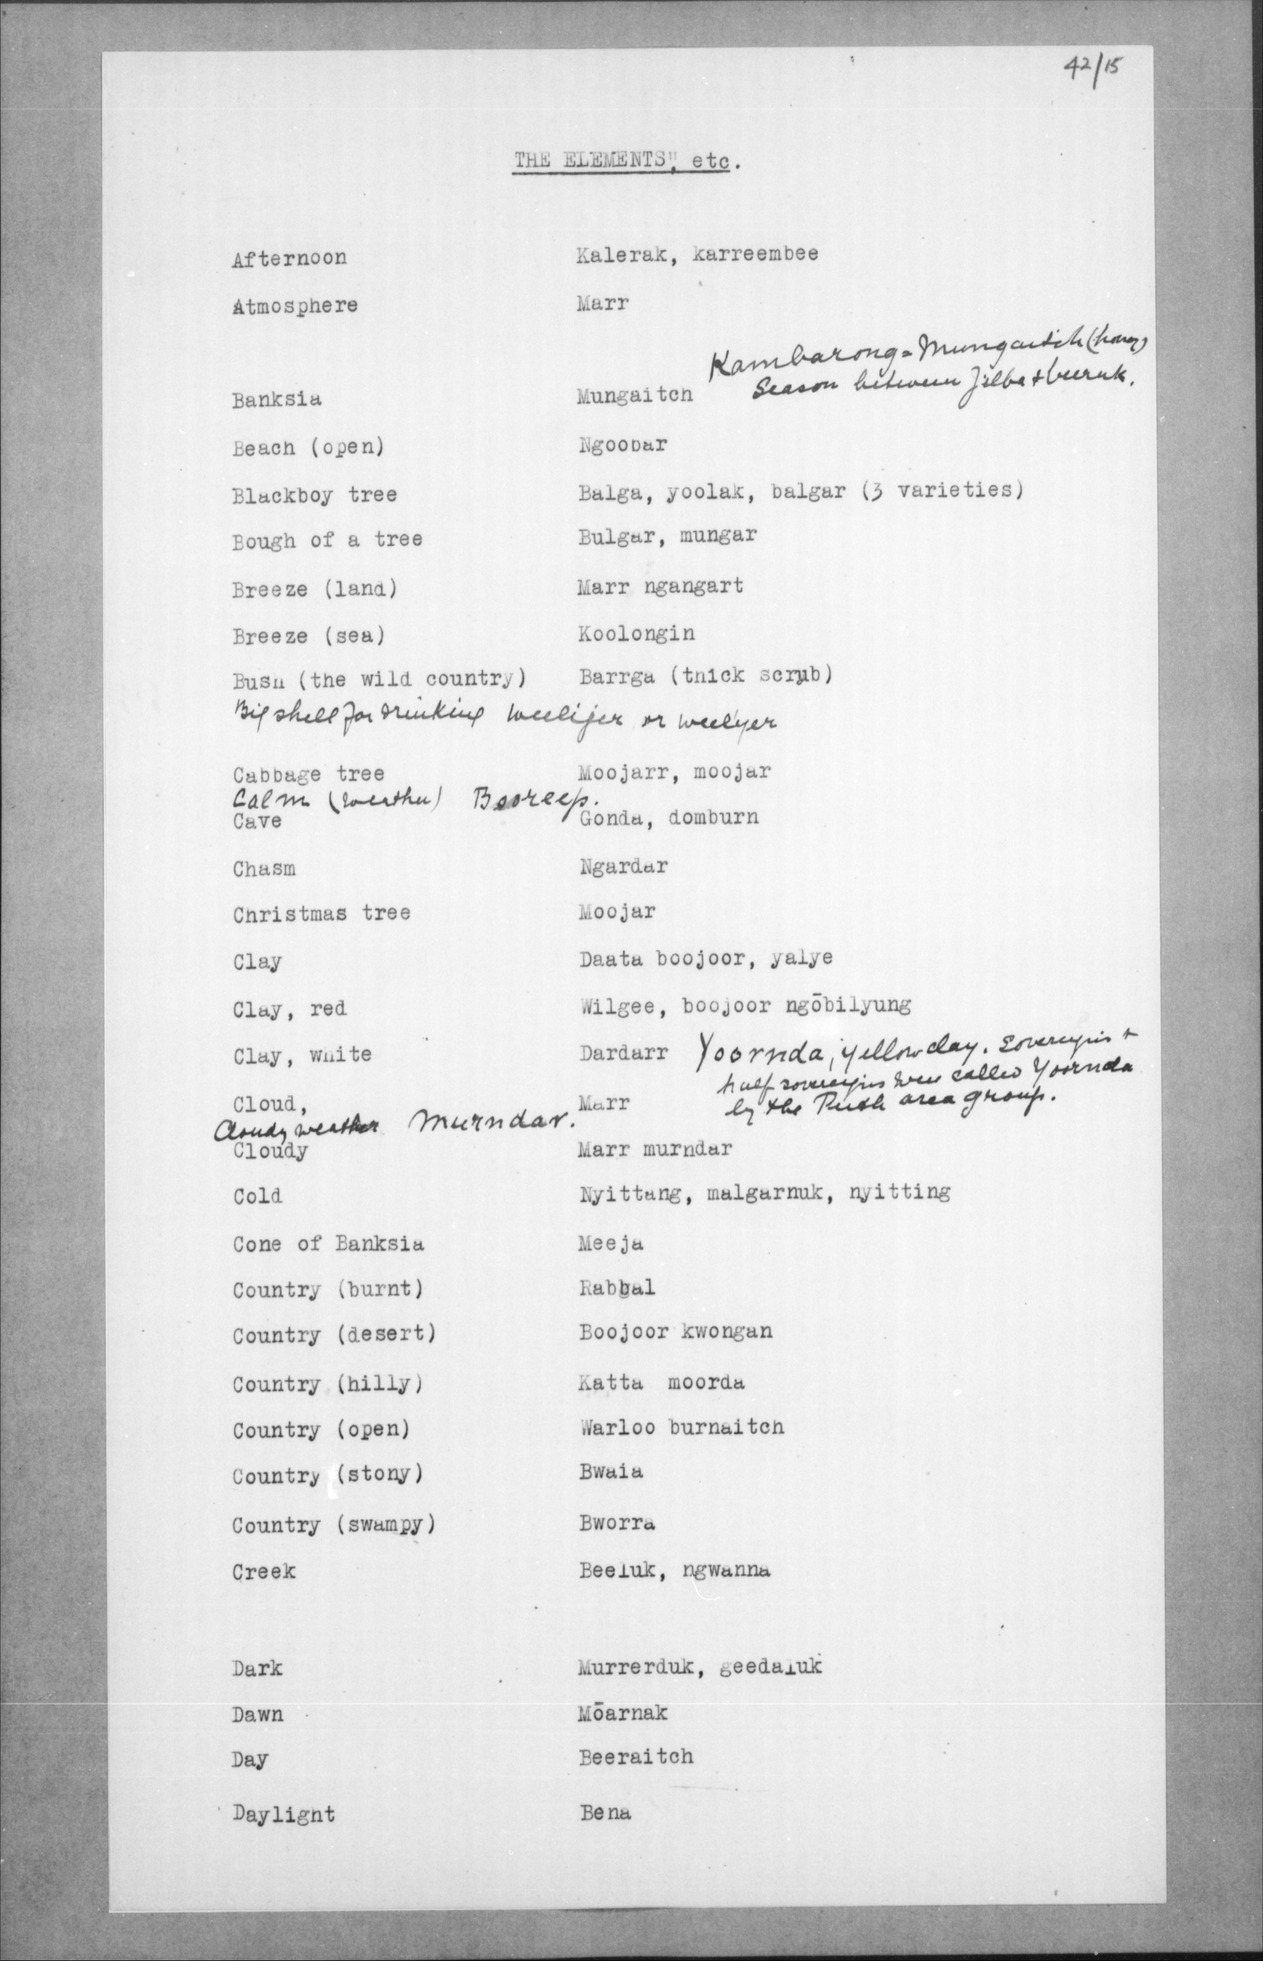 42/15
THE ELEMENTS", etc.
Afternoon Kalerak, karreembee
Atmosphere Marr
Kambarong = Mungaitch (honey)
Season between Jilba & beeruk.
Banksia Mungaitch
Beach (open) Ngoobar
Blackboy tree Balga, yoolak, balgar (3 varieties)
Bough of a tree Bulgar, mungar
Breeze (land) Marr ngangart
Breeze (sea) Koolongin
Bush (the wild country) Barrga (thick scrub)
Big shell for drinking weelijer or weelyer
Cabbage tree Moojarr, moojar
Calm (weather) Booreep.
Cave Gonda, domburn
Chasm Ngardar
Christmas tree Moojar
Clay Daata boojoor, yalye
Clay, red Wilgee, boojoor ngōbilyung
Clay, white Dardarr Yoornda, yellow clay. Sovereigns +
half sovereigns were called Yoornda
Cloud, Marr by the Perth area group.
Cloudy weather Murndar.
Cloudy Marr murndar
Cold Nyittang, malgarnuk, nyitting
Cone of Banksia Meeja
Country (burnt) Rabbal
Country (desert) Boojoor kwongan
Country (hilly) Katta moorda
Country (open) Warloo burnaitch
Country (stony) Bwaia
Country (swampy) Bworra
Creek Beeluk, ngwanna
Dark Murrerduk, geedaluk
Dawn Mōarnak
Day Beeraitch
Daylight Bena